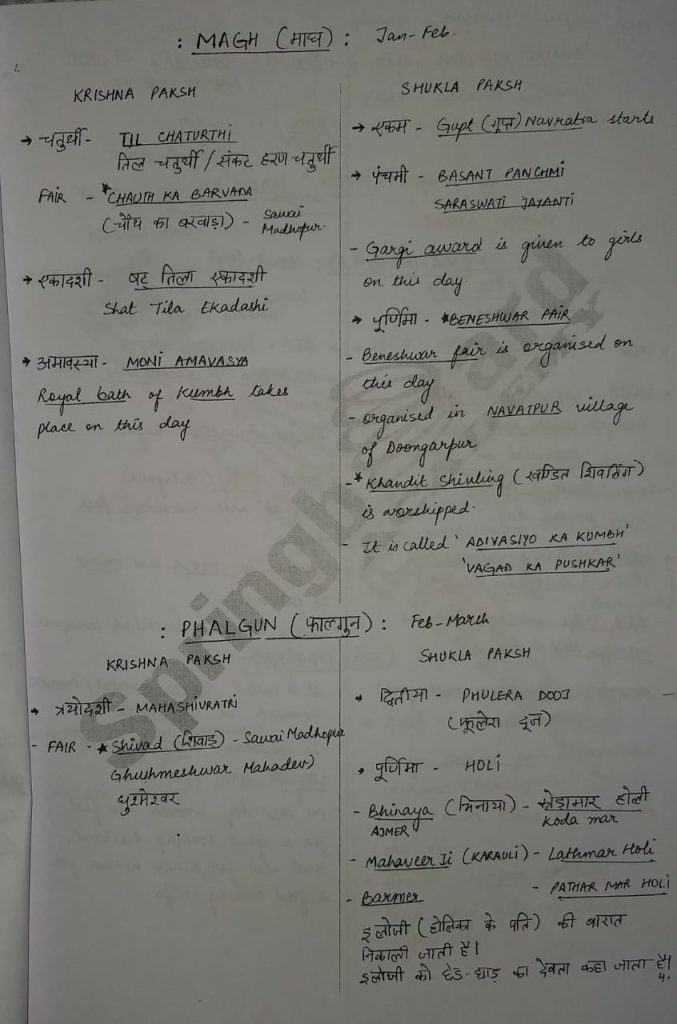 : MAGH (माघ) : Jan-Feb.
KRISHNA PAKSH
→ चतुर्थी - TIL CHATURTHI
तिल चतुर्थी / संकट हरण चतुर्थी
FAIR - *CHAUTH KA BARVADA
(चौथ का बरवाड़ा) - Sawai Madhopur.
→ एकादशी - षट् तिला एकादशी
Shat Tila Ekadashi
→ अमावस्या - MONI AMAVASYA
Royal bath of Kumbh takes
place on this day
SHUKLA PAKSH
→ एकम - Gupt (गुप्त) Navratra starts
→ पंचमी - BASANT PANCHMI
SARASWATI JAYANTI
- Gargi award is given to girls
on this day
→ पूर्णिमा - *BENESHWAR FAIR
- Beneshwar fair is organised on
this day
- organised in NAVATPUR village
of Doongarpur
- *Khandit Shivling (खण्डित शिवलिंग)
is worshipped.
- It is called 'ADIVASIYO KA KUMBH'
'VAGAD KA PUSHKAR'
: PHALGUN (फाल्गुन) : Feb-March
KRISHNA PAKSH
→ त्रयोदशी - MAHASHIVRATRI
- FAIR - *Shivad (शिवाड़) - Sawai Madhopur
Ghushmeshwar Mahadev)
घुश्मेश्वर
SHUKLA PAKSH
→ द्वितीया - PHULERA DOOJ
(फूलेरा दूज)
→ पूर्णिमा - HOLI
- Bhinaya (भिनाया) - कोड़ामार होली
AJMER Koda mar
- Mahaveer Ji (KARAULI) - Lathmar Holi
- Barmer - PATHAR MAR HOLI
इलोजी (होलिका के पति) की बारात
निकाली जाती है।
इलोजी को छेड़-छाड़ का देवता कहा जाता है।
4.
Springboard